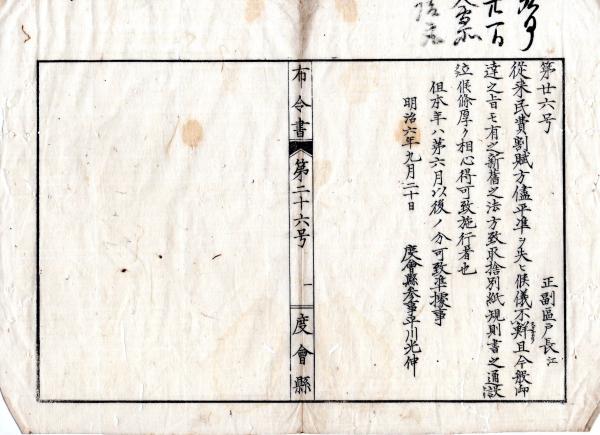 第廿六号
正副區戸長江
從来民費割賦方儘平準ヲ失ヒ候儀不鮮且今般御
達之旨モ有之新舊之法方致取捨別紙規則書之通設
立候條厚ク相心得可致施行者也
但本年ハ第六月以後ノ分可致準據事
明治六年九月二十日
度會縣参事平川光伸
布令書
第二十六号
一
度會縣